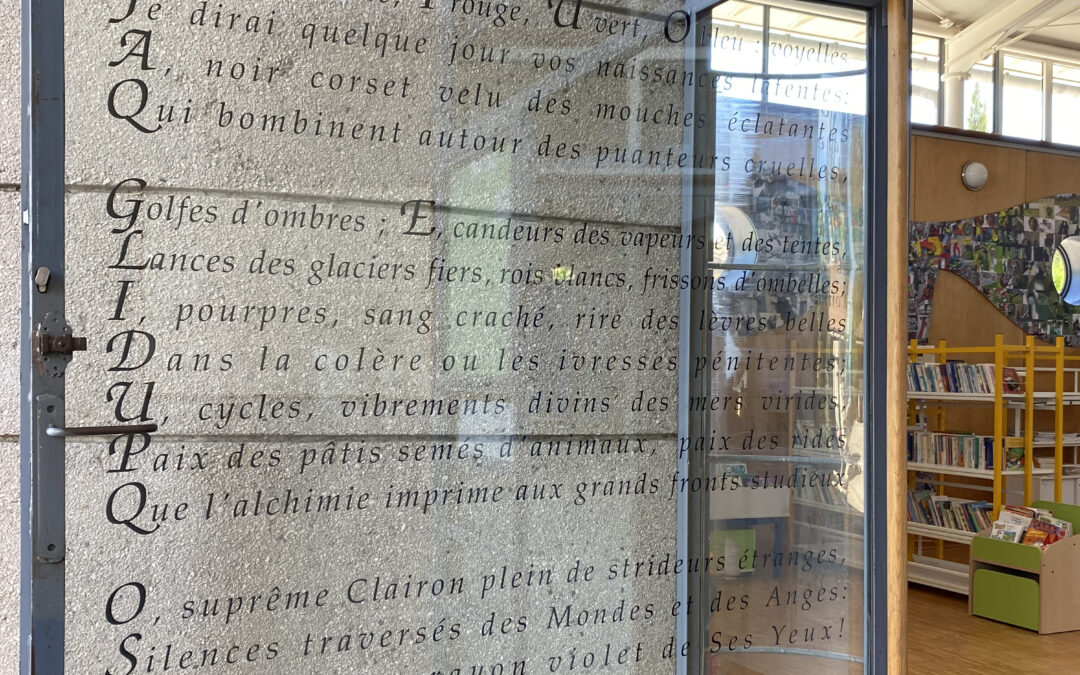 I rouge, U vert, O bleu : voyelles
Je dirai quelque jour vos naissances latentes:
A, noir corset velu des mouches éclatantes
Qui bombinent autour des puanteurs cruelles,
Golfes d'ombres ; E, candeurs des vapeurs et des tentes,
Lances des glaciers fiers, rois blancs, frissons d'ombelles;
I, pourpres, sang craché, rire des lèvres belles
Dans la colère ou les ivresses pénitentes;
U, cycles, vibrements divins des mers virides,
Paix des pâtis semés d'animaux, paix des rides
Que l'alchimie imprime aux grands fronts studieux
O, suprême Clairon plein de strideurs étranges,
Silences traversés des Mondes et des Anges:
rayon violet de Ses Yeux!